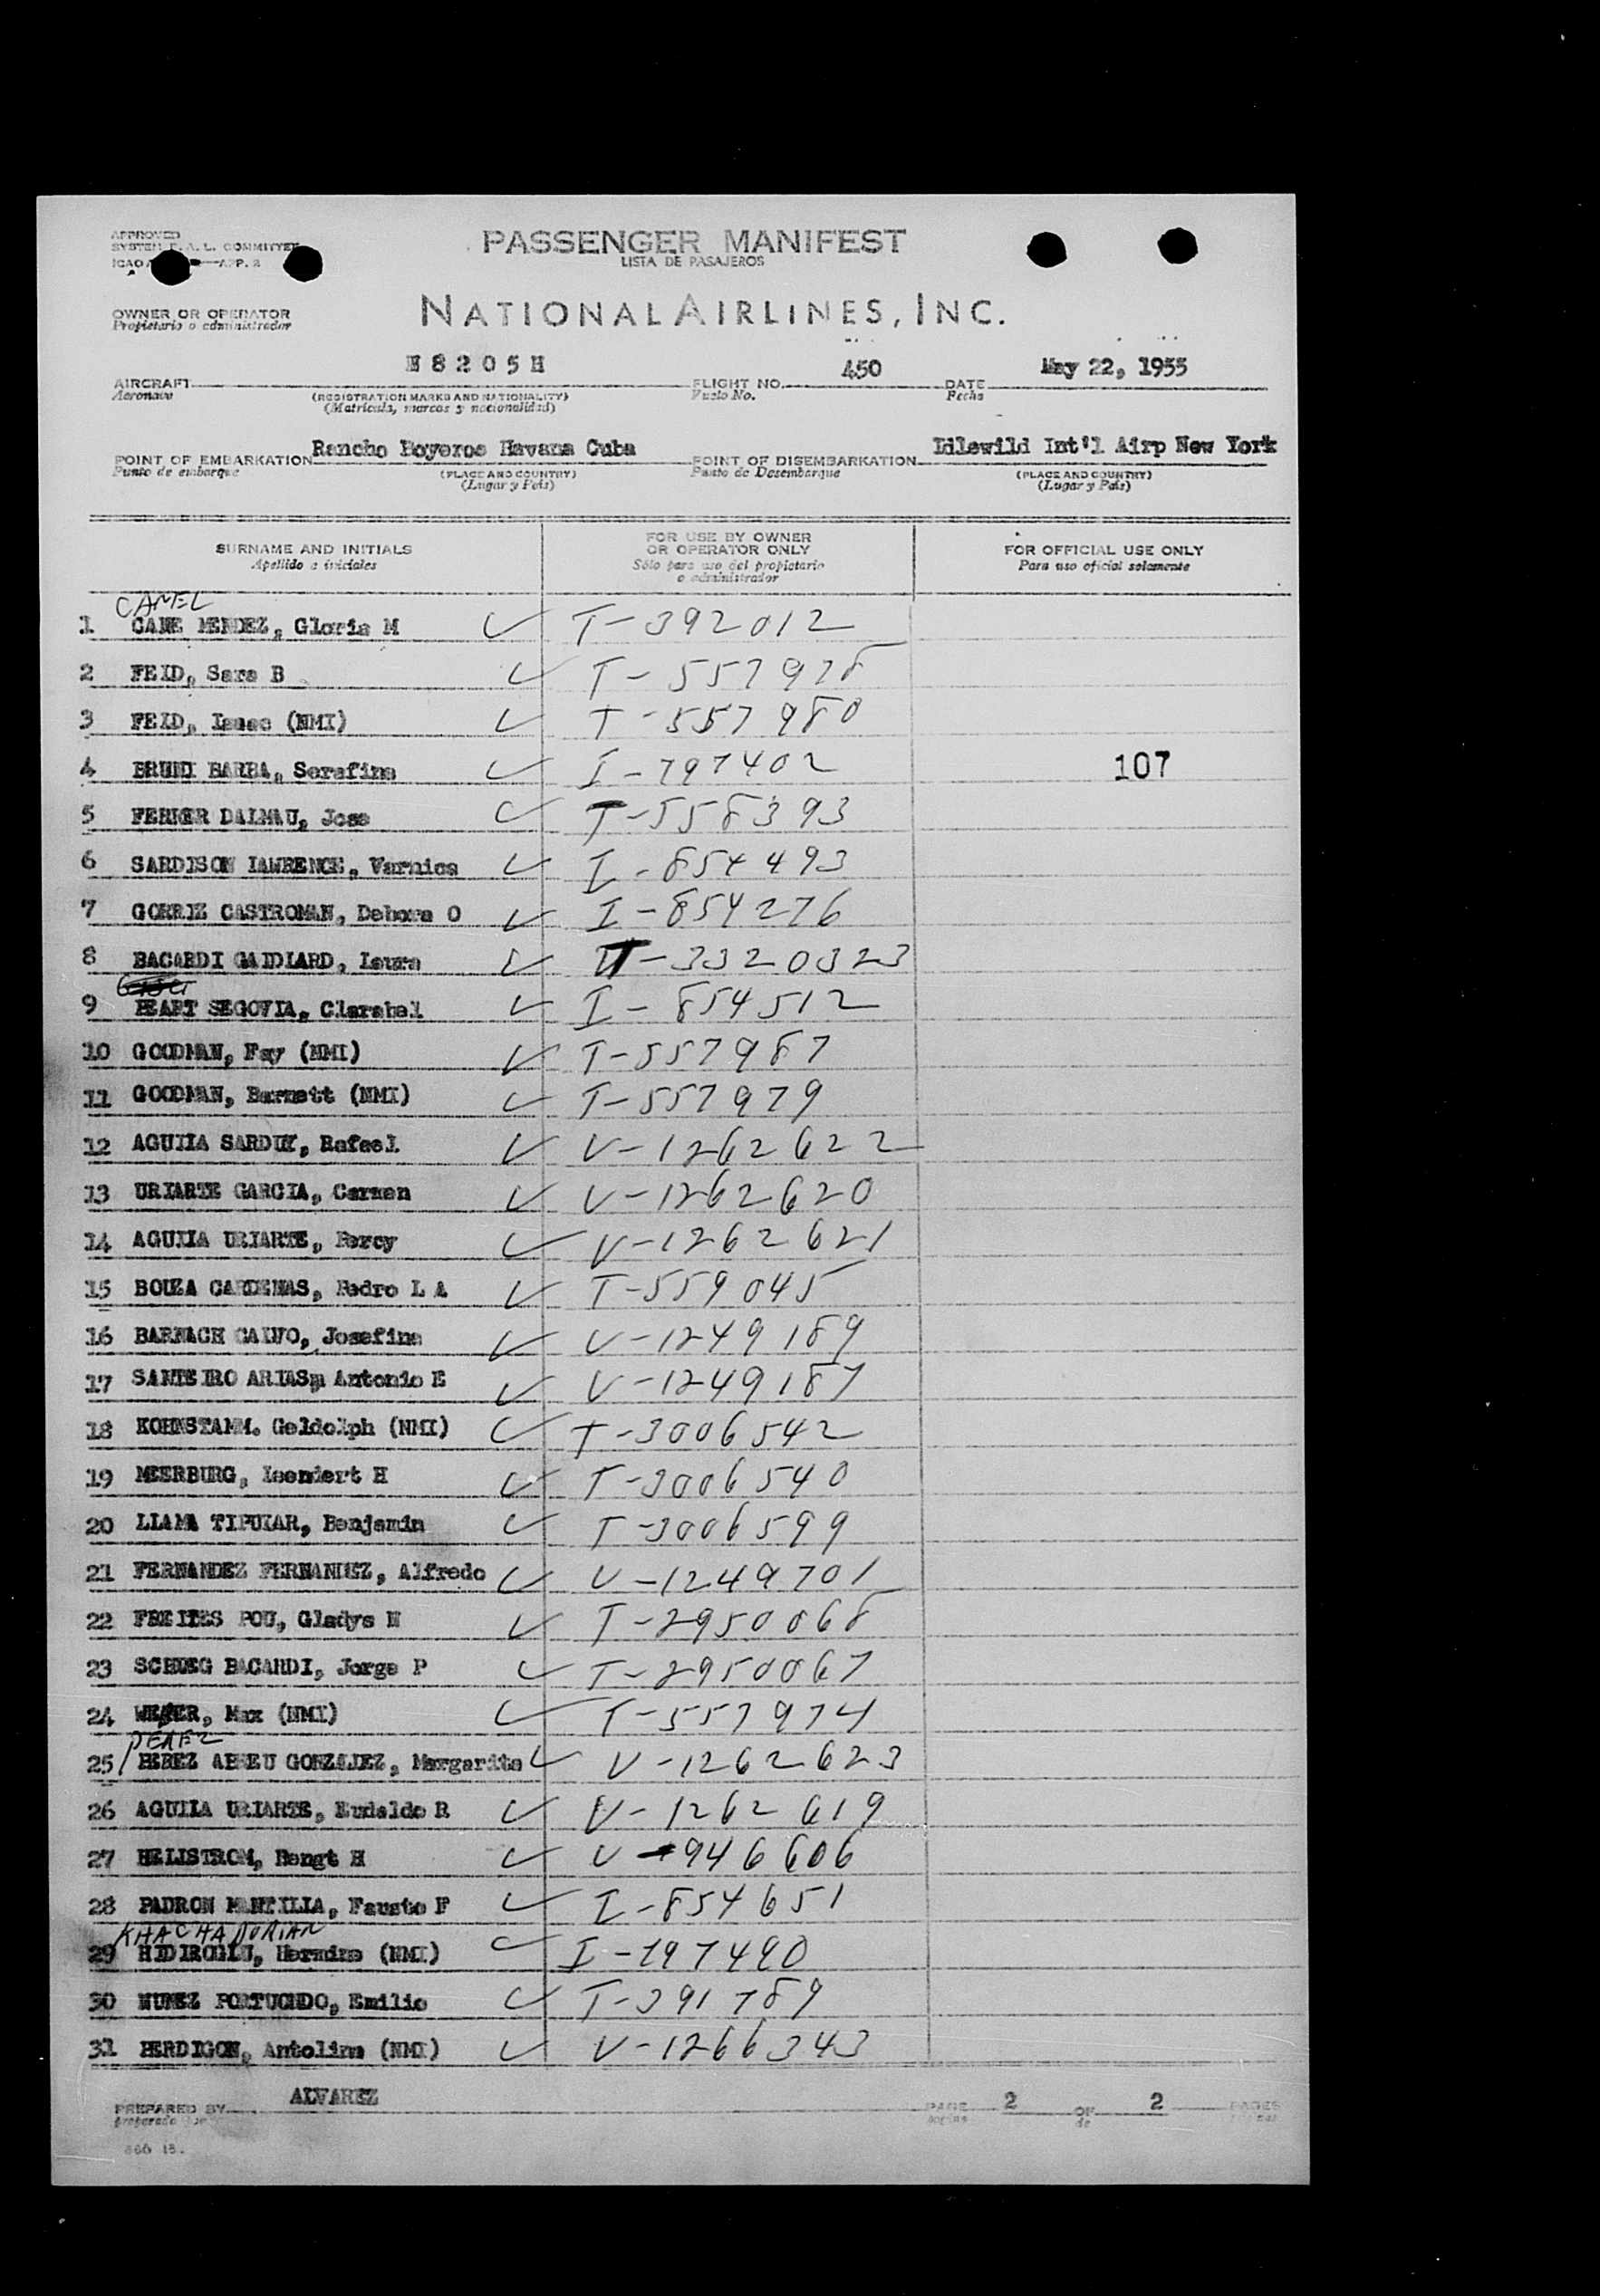 APPROVED
SYSTEM F. A. L. COMMITTEE
ICAO APP. 2
PASSENGER MANIFEST
LISTA DE PASAJEROS
OWNER OR OPERATOR
Propietario o administrador
NATIONAL AIRLINES, INC.
AIRCRAFT N8205H FLIGHT NO. 450 DATE May 22, 1955
Aeronave (REGISTRATION MARKS AND NATIONALITY) Vuelo No. Fecha
(Matricula, marcas y nacionalidad)
POINT OF EMBARKATION Rancho Boyeros Havana Cuba POINT OF DISEMBARKATION Idlewild Int'l Airp New York
Punto de embarque (PLACE AND COUNTRY) Punto de Desembarque (PLACE AND COUNTRY)
(Lugar y Pais) (Lugar y Pais)
SURNAME AND INITIALS FOR USE BY OWNER OR OPERATOR ONLY FOR OFFICIAL USE ONLY
Apellido e iniciales Sólo para uso del propietario o administrador Para uso oficial solamente
CAMEL
1 CAME MENDEZ, Gloria M T-392012
2 FEID, Sara B T-557978
3 FEID, Isaac (NMI) T-557980
4 BRUNI BARBA, Serafina I-797402 107
5 FERRER DALMAU, Jose T-558393
6 SARDISON LAWRENCE, Varnica I-854493
7 GORRIZ CASTROMAN, Debora O I-854276
8 BACARDI GAIDIARD, Laura T-3320323
9 PEART SEGOVIA, Clarabel I-854512
10 GOODMAN, Fay (NMI) T-557987
11 GOODMAN, Barnett (NMI) T-557979
12 AGUILA SARDUY, Rafael V-1262622
13 URIARTE GARCIA, Carmen V-1262620
14 AGUILA URIARTE, Percy V-1262621
15 BOUZA CARDENAS, Pedro L A T-559045
16 BARNACH CALVO, Josefina V-1249189
17 SANTEIRO ARIAS, Antonio E V-1249187
18 KOHNSTAMM. Geldolph (NMI) T-3006542
19 MEERBURG, Leendert H T-3006540
20 LLAMA TIPULAR, Benjamin T-3006599
21 FERNANDEZ FERNANDEZ, Alfredo V-1249701
22 FREITES POU, Gladys N T-2950068
23 SCHUEG BACARDI, Jorge P T-2950067
24 WEBER, Max (NMI) T-557974
PEREZ
25 PEREZ ABREU GONZALEZ, Margarita V-1262623
26 AGUILA URIARTE, Eudaldo R V-1262619
27 HELLSTROM, Bengt H V-946606
28 PADRON MANTILLA, Fausto F I-854651
KHACHADORIAN
29 HIDIROGLU, Hermine (NMI) I-797490
30 NUNEZ PORTUONDO, Emilio T-391789
31 PERDIGON, Antolina (NMI) V-1266343
PREPARED BY ALVAREZ PAGE 2 OF 2 PAGES
preparado por de